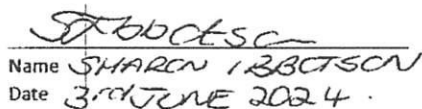 SIbbotson
Name SHARON IBBOTSON
Date 3rd JUNE 2024.